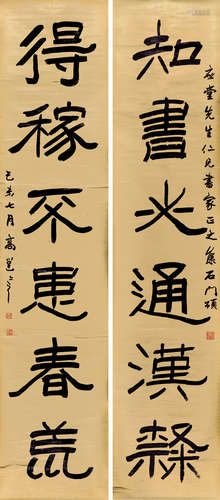 知書必通漢隸
堂先生仁兄書家正之集石門頌
得稼不患春荒
己未七月高邕之